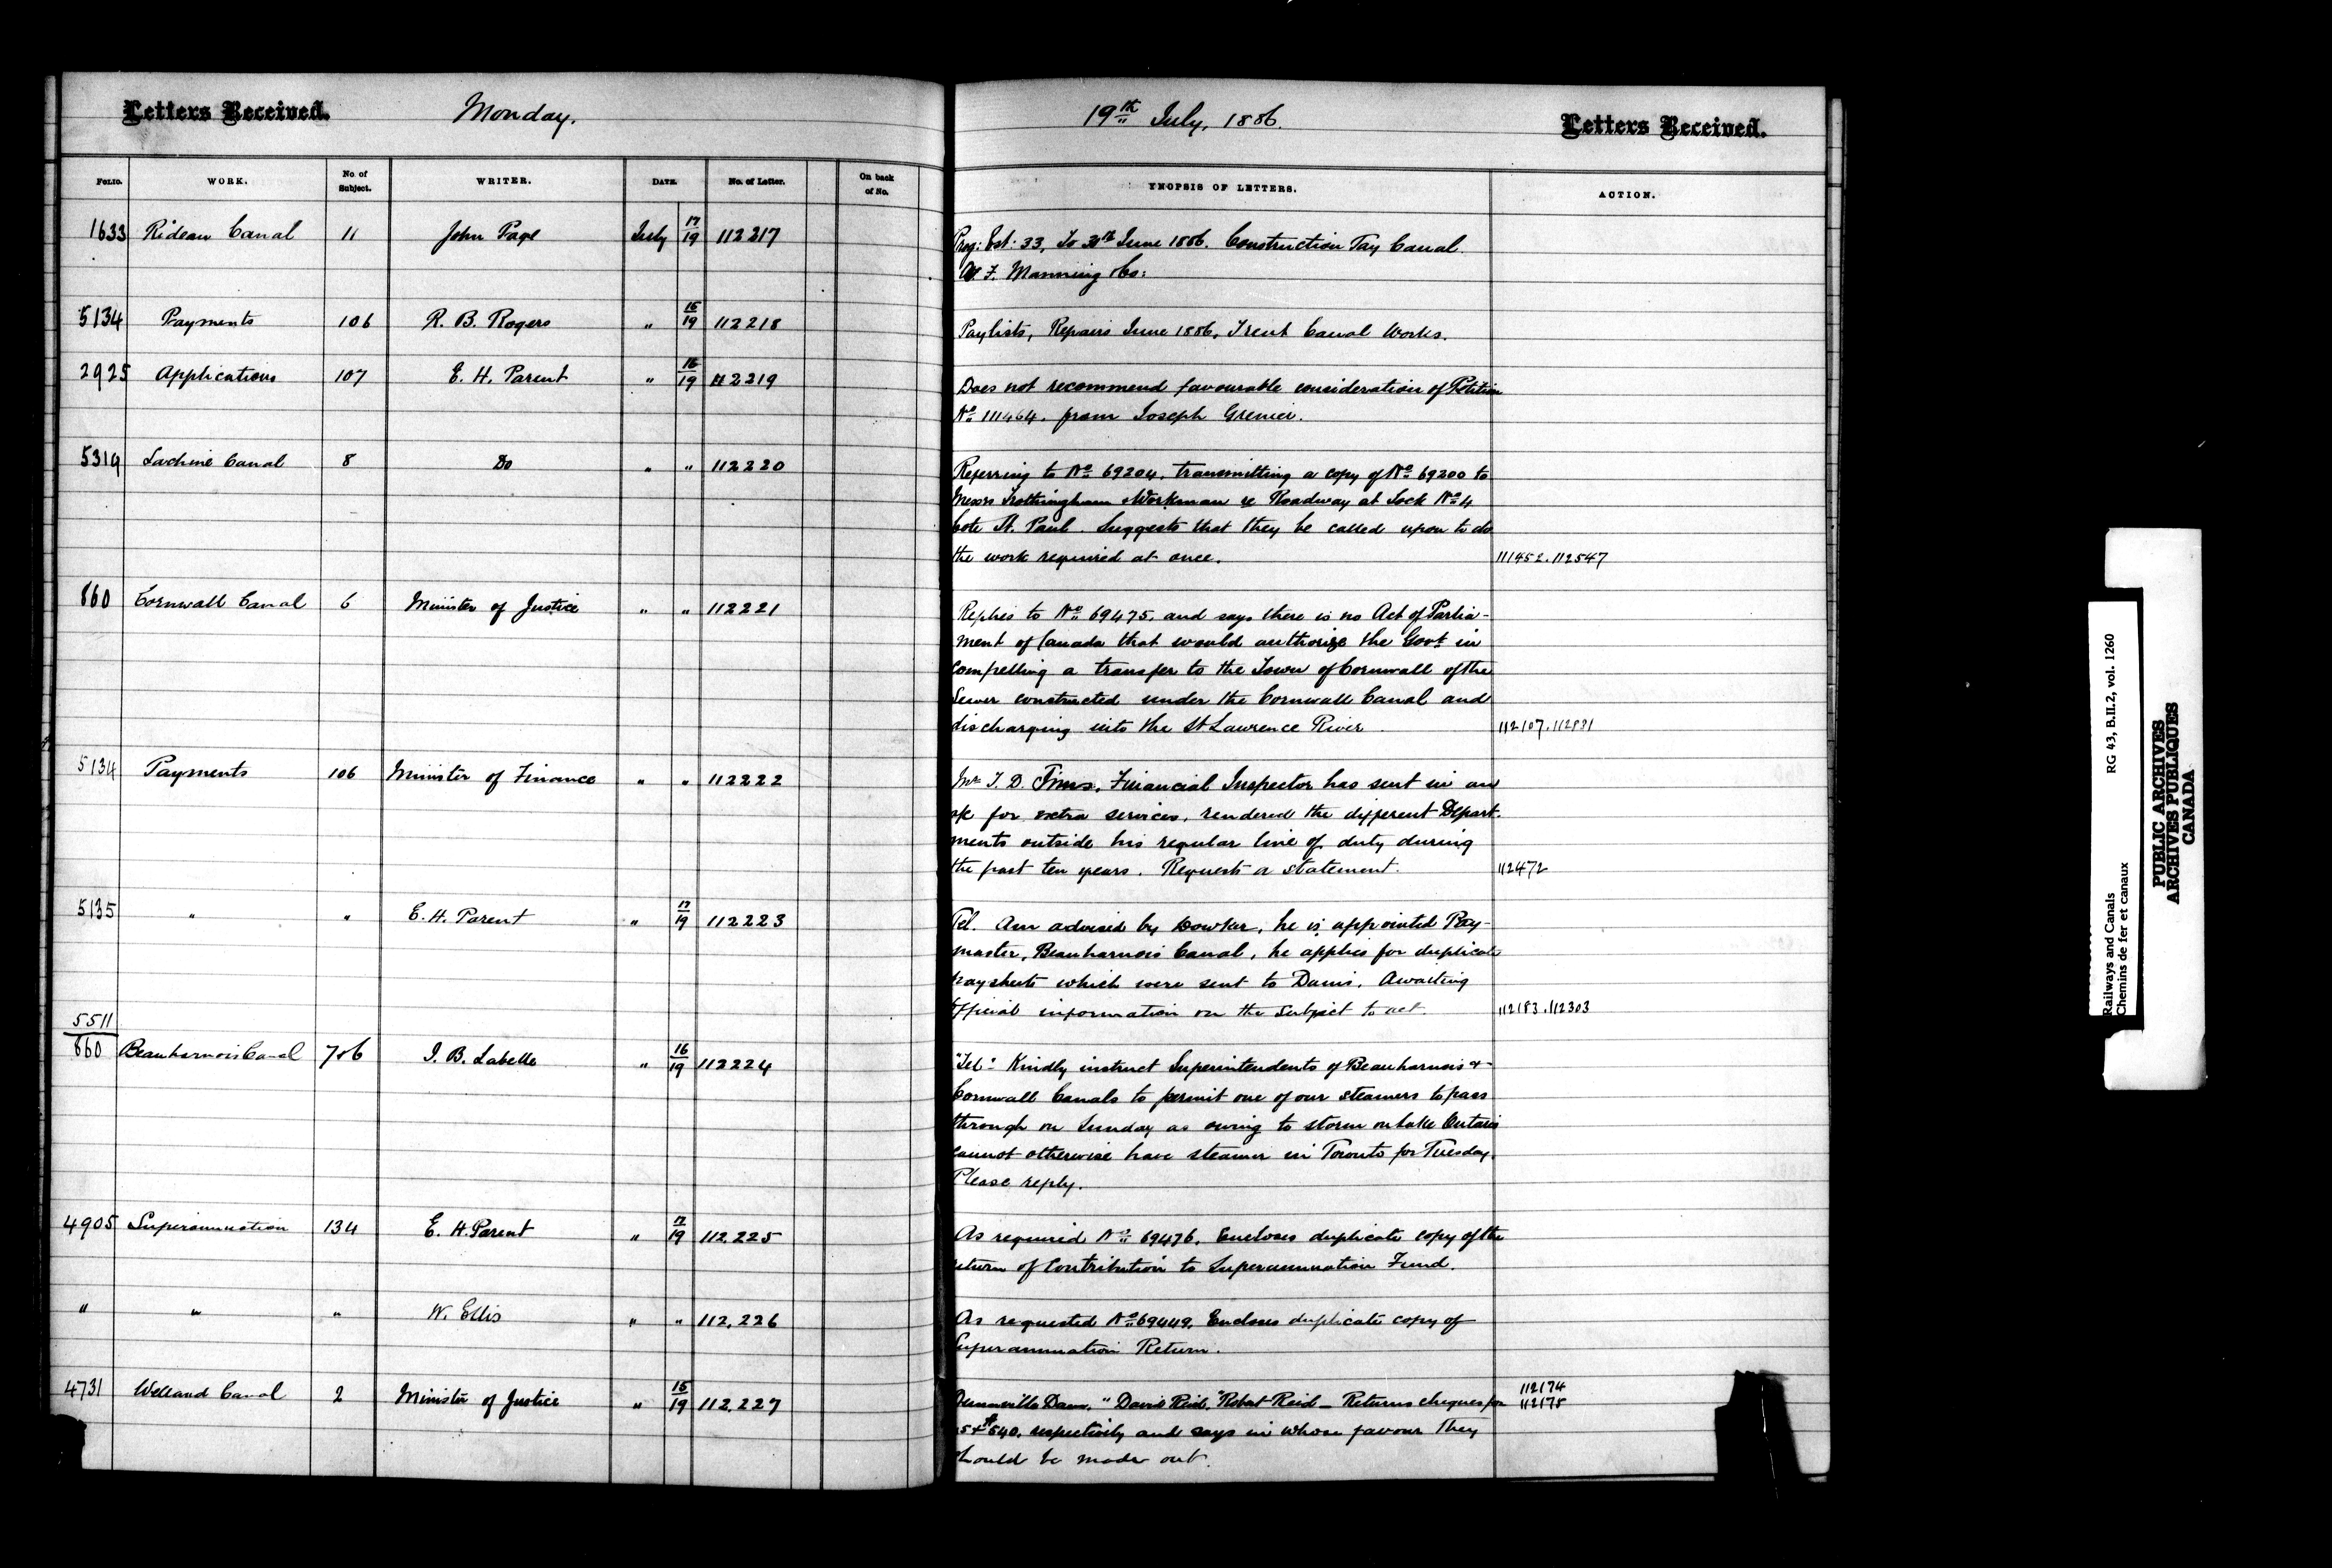 Letters Received. Monday.
19th July, 1886. Letters Received.
FOLIO. WORK. No. of Subject. WRITER. DATE. No. of Letter. On back of No.
YNOPSIS OF LETTERS. ACTION.
1633 Rideau Canal 11 John Page July 17/19 112217
Prog: Est: 33, To 30th June 1886. Construction Tay Canal.
F. Manning & Co:
5134 Payments 106 R. B. Rogers " 15/19 112218
Paylists, Repairs June 1886, Trent Canal Works.
2925 Applications 107 E. H. Parent " 16/19 112219
Does not recommend favourable consideration of Petition
No 111464. from Joseph Grenier.
5314 Lachine Canal 8 Do " " 112220
Referring to No 69204. transmitting a copy of No 69200 to
Messrs Frothingham & Workman re Roadway at Lock No 4
Cote St. Paul. Suggests that they be called upon to do
the work required at once. 111452.112547
860 Cornwall Canal 6 Minister of Justice " " 112221
Replies to No 69475. and says there is no Act of Parlia-
ment of Canada that would authorize the Govt in
compelling a transfer to the Town of Cornwall of the
Sewer constructed under the Cornwall Canal and
discharging into the St Lawrence River. 112107.112881
5134 Payments 106 Minister of Finance " " 112222
Mr T. D. Tims, Financial Inspector has sent in an
a/c for extra services, rendered the different Depart-
ments outside his regular line of duty during
the past ten years. Requests a statement. 112472
5135 " " E. H. Parent " 17/19 112223
Tel. Am advised by Dowker, he is appointed Pay-
master, Beauharnois Canal, he applies for duplicate
paysheets which were sent to Danis. Awaiting
official information on the subject to act. 112183.112303
5511/860 Beauharnois Canal 7 & 6 J. B. Labelle " 16/19 112224
"Tel" Kindly instruct Superintendents of Beauharnois &
Cornwall Canals to permit one of our steamers to pass
through on Sunday as owing to storm on Lake Ontario
cannot otherwise have steamer in Toronto for Tuesday.
Please reply.
4905 Superannuation 134 E. H. Parent " 17/19 112,225
As required No 69476. Encloses duplicate copy of the
return of Contribution to Superannuation Fund.
" " " W. Ellis " " 112,226
As requested No 69449. Encloses duplicate copy of
Superannuation Return.
4731 Welland Canal 2 Minister of Justice " 15/19 112,227
Dunnville Dam, "David Reid, "Robert Reid - Returns cheques for 112174 112175
& $540. respectively and says in whose favour they
should be made out.
RG 43, B.II.2, vol. 1260
Railways and Canals
Chemins de fer et canaux
PUBLIC ARCHIVES
ARCHIVES PUBLIQUES
CANADA